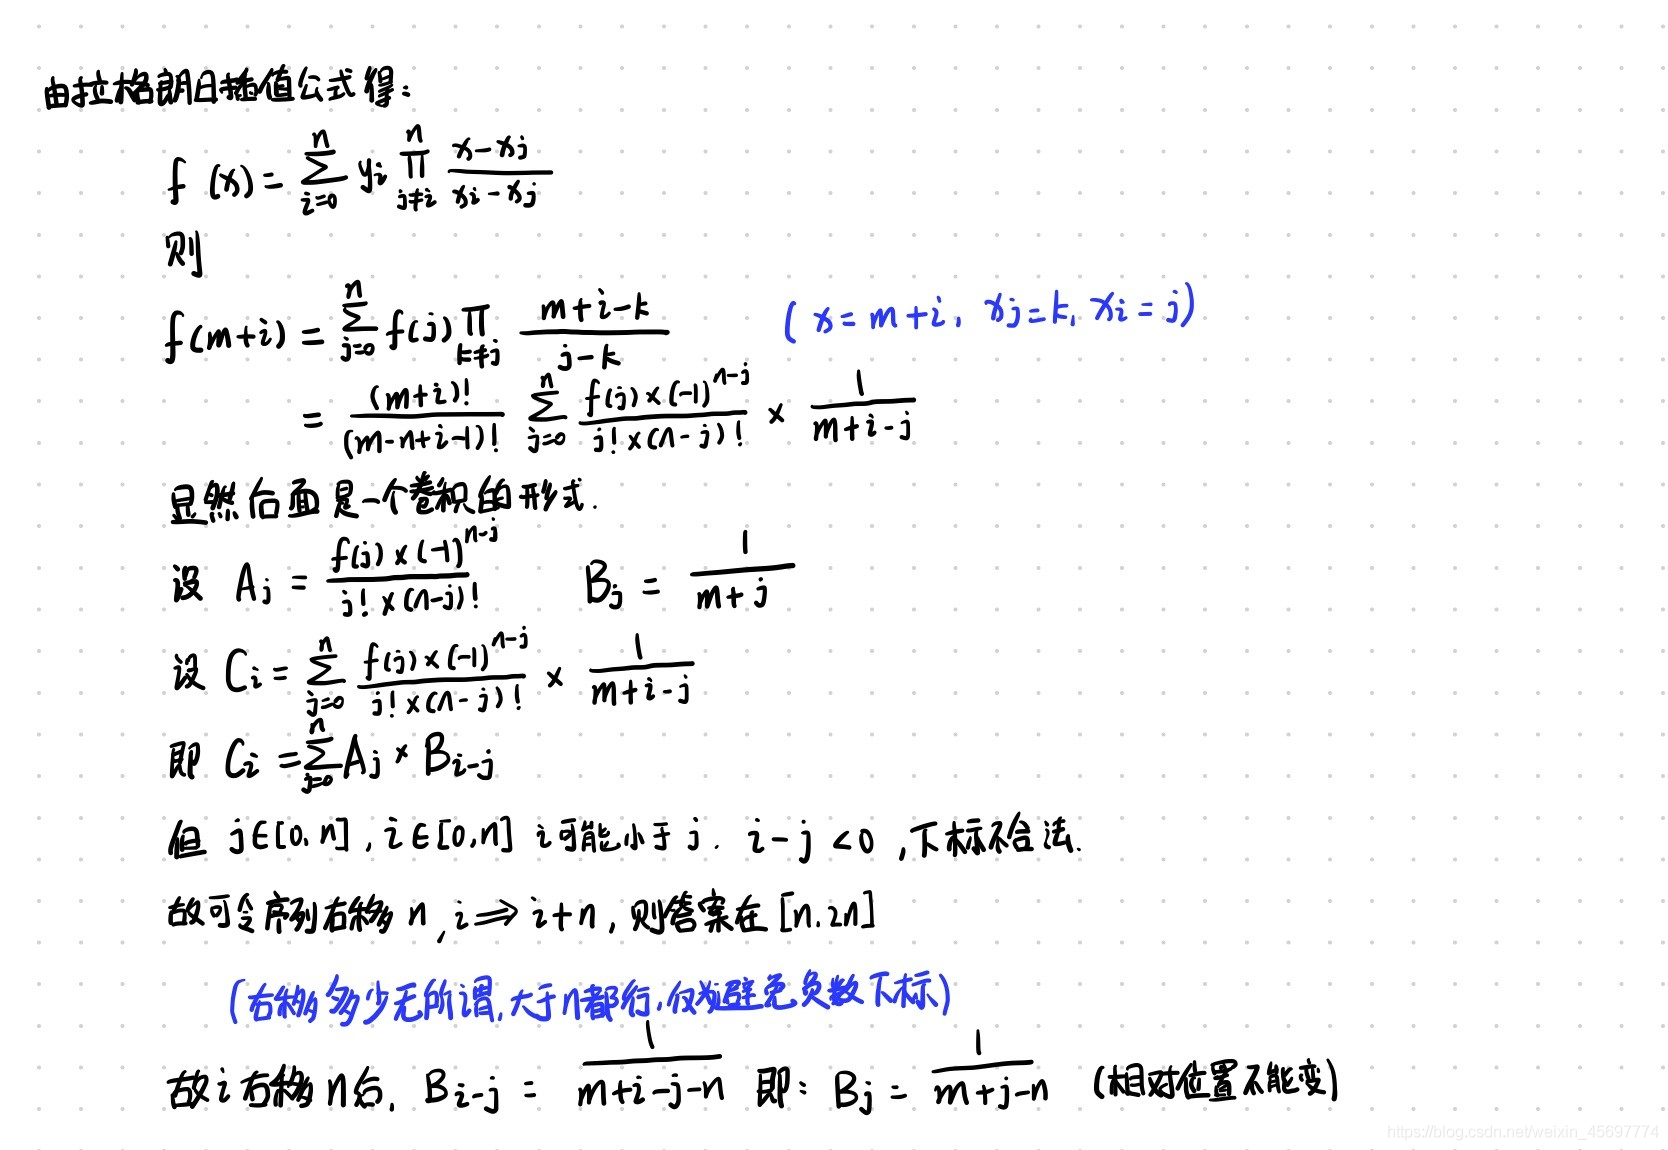 由拉格朗日插值公式得:
f(x) = \sum_{i=0}^{n} y_i \prod_{j≠i}^{n} \frac{x-x_j}{x_i-x_j}
则
f(m+i) = \sum_{j=0}^{n} f(j) \prod_{k≠j} \frac{m+i-k}{j-k} (x=m+i, x_j=k, x_i=j)
= \frac{(m+i)!}{(m-n+i-1)!} \sum_{j=0}^{n} \frac{f(j)×(-1)^{n-j}}{j!×(n-j)!} × \frac{1}{m+i-j}
显然后面是一个卷积的形式.
设 A_j = \frac{f(j)×(-1)^{n-j}}{j!×(n-j)!} B_j = \frac{1}{m+j}
设 C_i = \sum_{j=0}^{n} \frac{f(j)×(-1)^{n-j}}{j!×(n-j)!} × \frac{1}{m+i-j}
即 C_i = \sum_{j=0}^{n} A_j × B_{i-j}
但 j∈[0,n], i∈[0,n] i可能小于j. i-j<0, 下标不合法.
故可令序列右移n, i⇒i+n, 则答案在[n,2n]
(右移多少无所谓,大于n都行,仅为避免负数下标)
故i右移n后, B_{i-j} = \frac{1}{m+i-j-n} 即: B_j = \frac{1}{m+j-n} (相对位置不能变)
https://blog.csdn.net/weixin_45697774